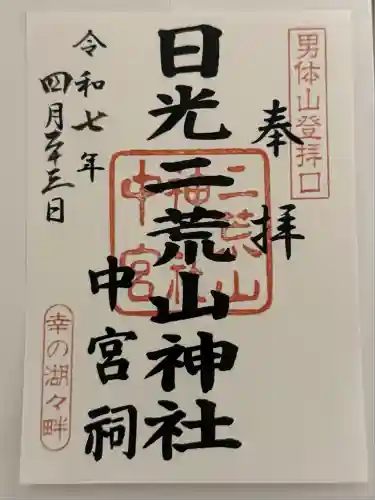 男体山登拝口
奉拝
日光二荒山神社
中宮祠
二荒山神社中宮
令和七年
四月二十三日
幸の湖々畔